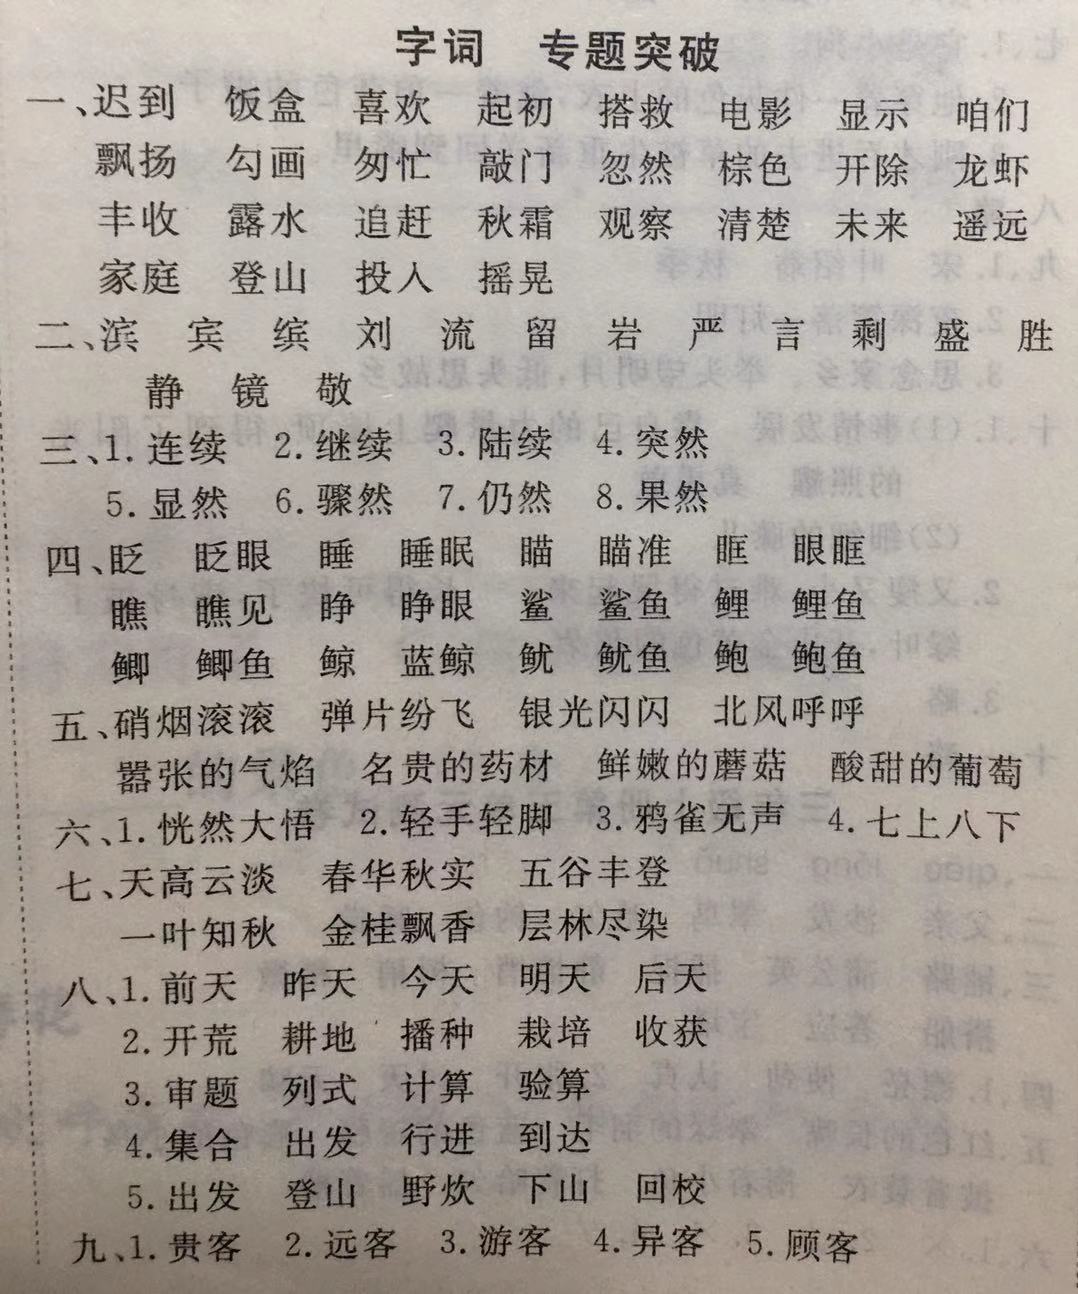 字词 专题突破
一、迟到 饭盒 喜欢 起初 搭救 电影 显示 咱们
飘扬 勾画 匆忙 敲门 忽然 棕色 开除 龙虾
丰收 露水 追赶 秋霜 观察 清楚 未来 遥远
家庭 登山 投入 摇晃
二、滨 宾 缤 刘 流 留 岩 严 言 剩 盛 胜
静 镜 敬
三、1.连续 2.继续 3.陆续 4.突然
5.显然 6.骤然 7.仍然 8.果然
四、眨 眨眼 睡 睡眠 瞄 瞄准 眶 眼眶
瞧 瞧见 睁 睁眼 鲨 鲨鱼 鲤 鲤鱼
鲫 鲫鱼 鲸 蓝鲸 鱿 鱿鱼 鲍 鲍鱼
五、硝烟滚滚 弹片纷飞 银光闪闪 北风呼呼
嚣张的气焰 名贵的药材 鲜嫩的蘑菇 酸甜的葡萄
六、1.恍然大悟 2.轻手轻脚 3.鸦雀无声 4.七上八下
七、天高云淡 春华秋实 五谷丰登
一叶知秋 金桂飘香 层林尽染
八、1.前天 昨天 今天 明天 后天
2.开荒 耕地 播种 栽培 收获
3.审题 列式 计算 验算
4.集合 出发 行进 到达
5.出发 登山 野炊 下山 回校
九、1.贵客 2.远客 3.游客 4.异客 5.顾客